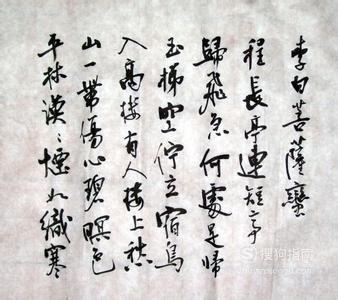 平林漠〻煙如織寒
山一帶傷心碧暝色
入高樓有人樓上愁
玉梯空佇立宿鳥
歸飛急何處是歸
程長亭連短亭
李白菩薩蠻
搜狗指南